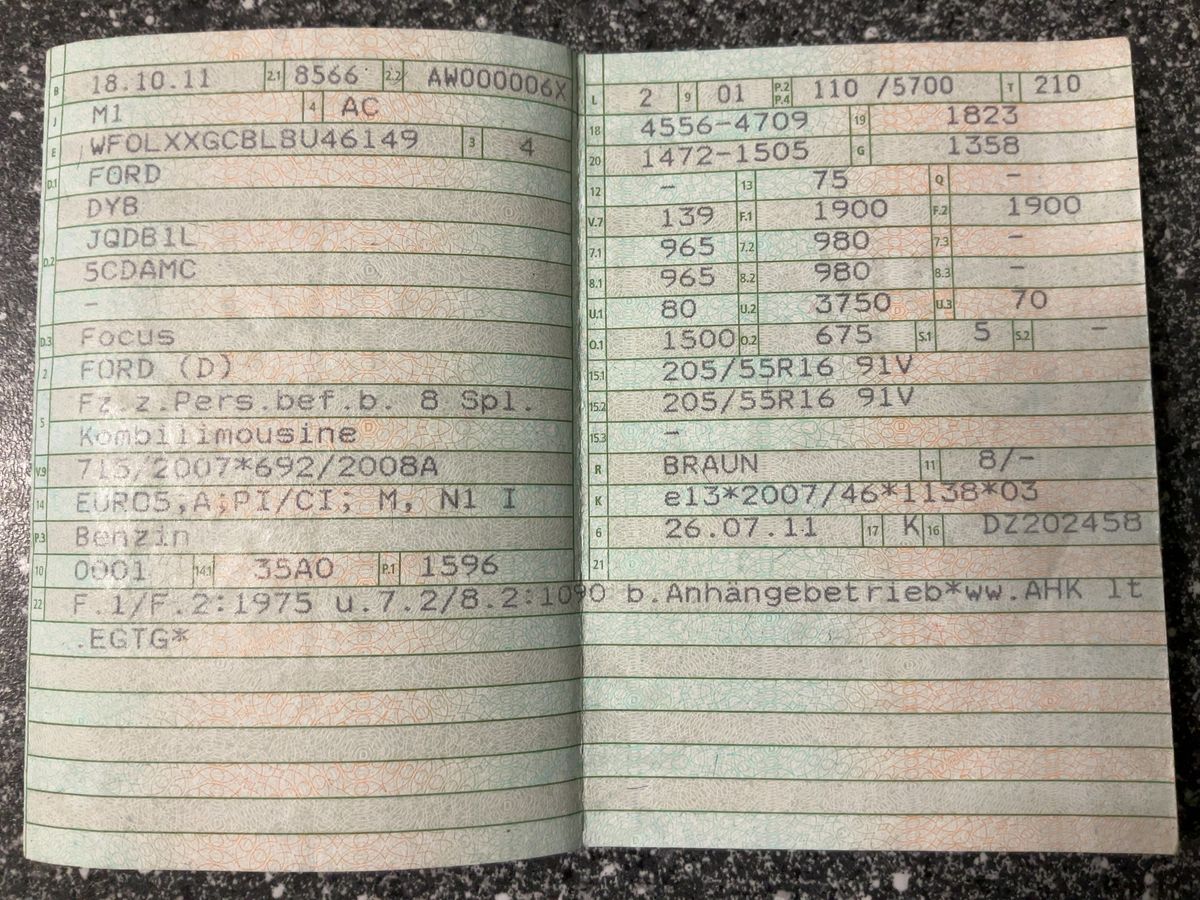 B 18.10.11 2.1 8566 2.2 AW000006X
J M1 4 AC
E WF0LXXGCBLBU46149 3 4
D.1 FORD
DYB
D.2 JQDB1L
5CDAMC
–
D.3 Focus
2 FORD (D)
5 Fz.z.Pers.bef.b. 8 Spl.
Kombilimousine
V.9 715/2007*692/2008A
14 EURO5;A;PI/CI; M, N1 I
P.3 Benzin
10 0001 14.1 35A0 P.1 1596
L 2 9 01 P.2 P.4 110 /5700 T 210
18 4556-4709 19 1823
20 1472-1505 G 1358
12 – 13 75 Q –
V.7 139 F.1 1900 F.2 1900
7.1 965 7.2 980 7.3 –
8.1 965 8.2 980 8.3 –
U.1 80 U.2 3750 U.3 70
O.1 1500 O.2 675 S.1 5 S.2 –
15.1 205/55R16 91V
15.2 205/55R16 91V
15.3 –
R BRAUN 11 8/–
K e13*2007/46*1138*03
6 26.07.11 17 K 16 DZ202458
21
22 F.1/F.2:1975 u.7.2/8.2:1090 b.Anhängebetrieb*ww.AHK lt
.EGTG*